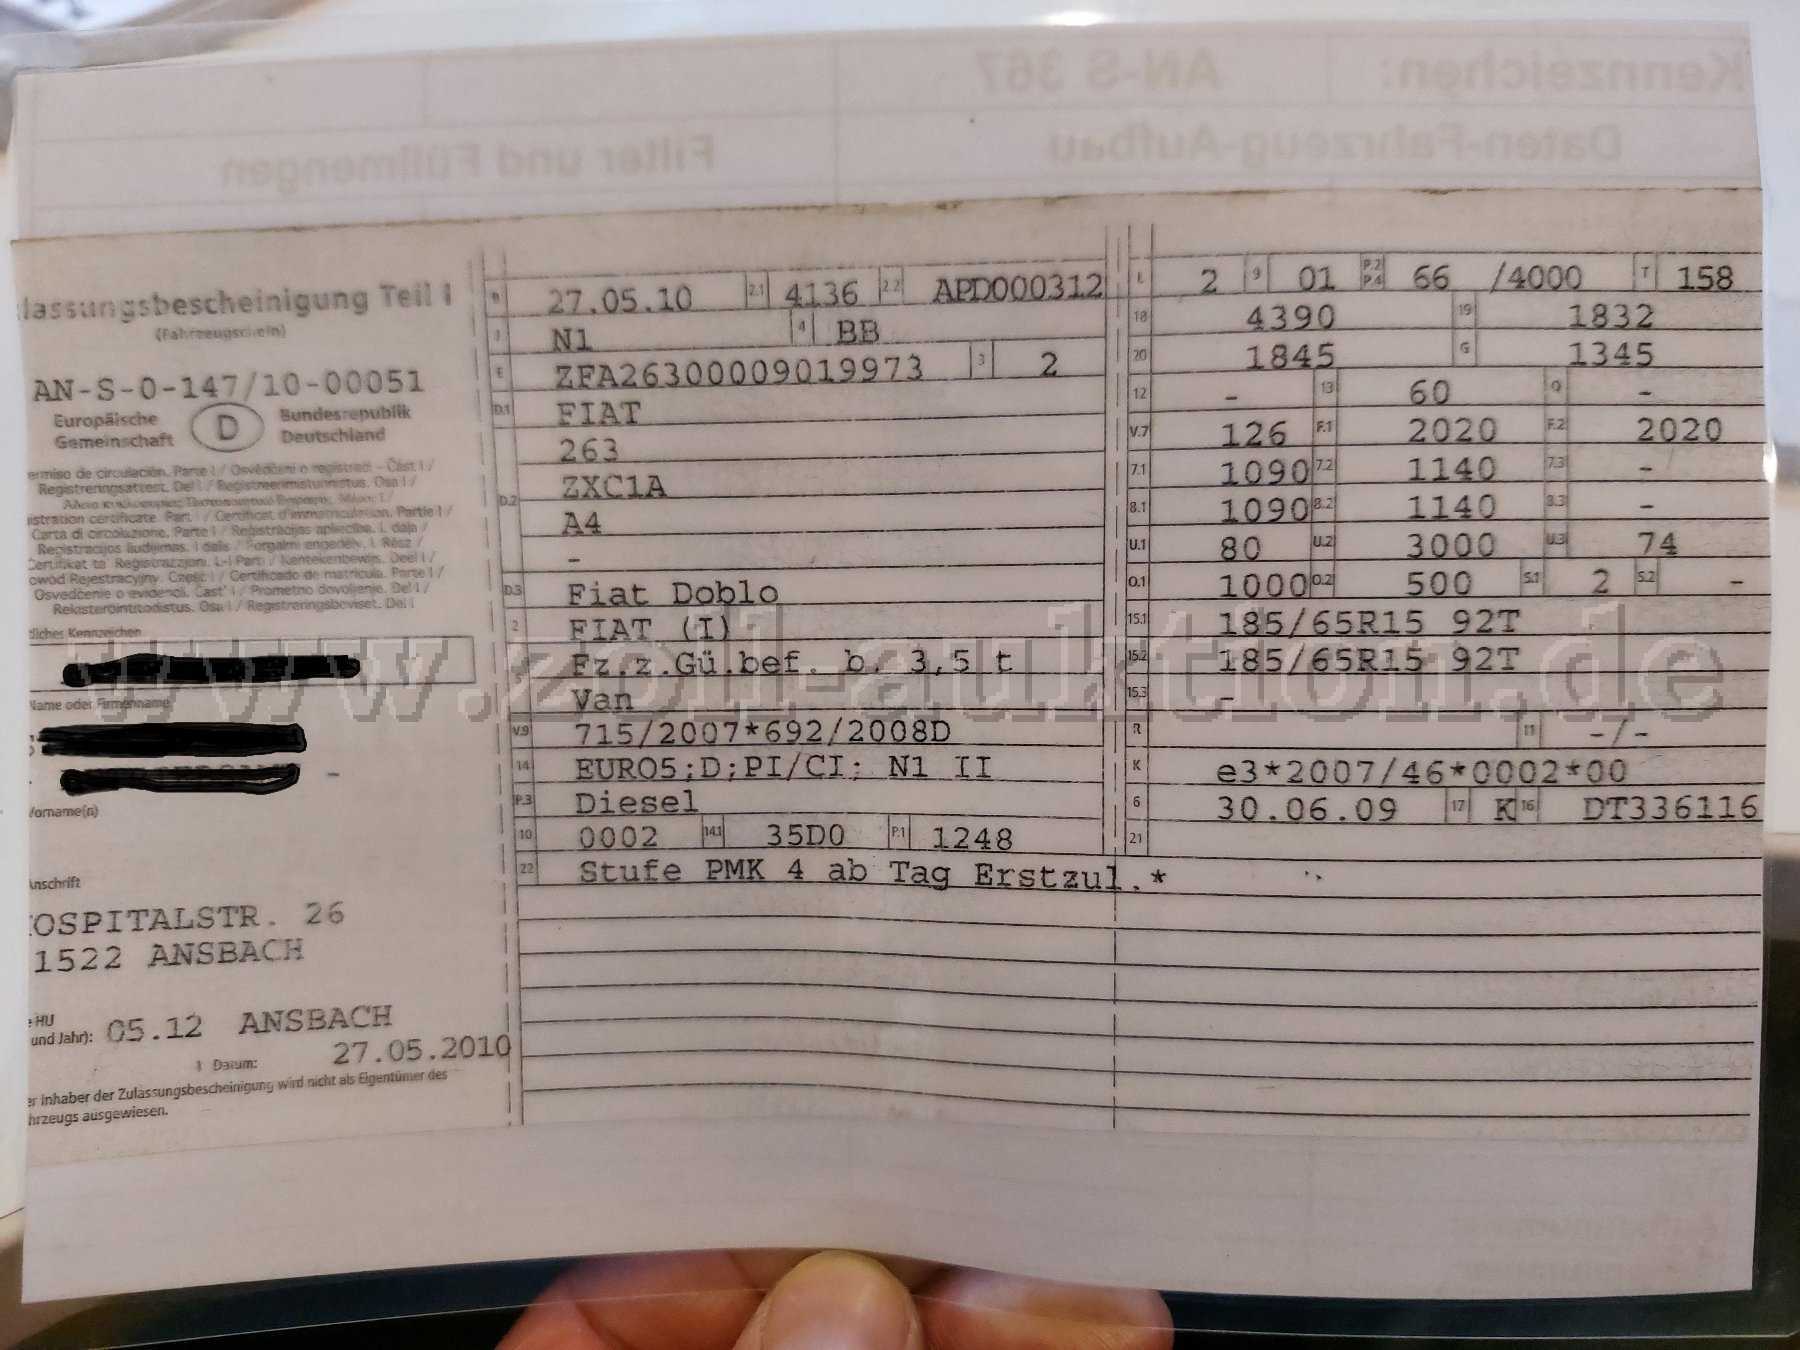 Kennzeichen: AN-S 367
Daten-Fahrzeug-Aufbau Filter und Füllmengen
lassungsbescheinigung Teil I
(Fahrzeugschein)
AN-S-0-147/10-00051
Europäische Gemeinschaft D Bundesrepublik Deutschland
ermiso de circulación. Parte I / Osvědčení o registraci - Část I /
Registreringsattest. Del I / Registreerimistunnistus. Osa I /
istration certificate. Part I / Certificat d'immatriculation. Partie I /
Carta di circolazione. Parte I / Reģistrācijas apliecība. I. daļa /
Registracijos liudijimas. I dalis / Forgalmi engedély. I. Rész /
Certifikat ta' Reġistrazzjoni. L-I Parti / Kentekenbewijs. Deel I /
owód Rejestracyjny. Część I / Certificado de matrícula. Parte I /
Osvedčenie o evidencii. Časť I / Prometno dovoljenje. Del I /
Rekisteröintitodistus. Osa I / Registreringsbeviset. Del I
tliches Kennzeichen
Name oder Firmenname
Vorname(n)
Anschrift
OSPITALSTR. 26
1522 ANSBACH
HU
und Jahr): 05.12 ANSBACH
Datum: 27.05.2010
er Inhaber der Zulassungsbescheinigung wird nicht als Eigentümer des
hrzeugs ausgewiesen.
B 27.05.10 2.1 4136 2.2 APD000312
J N1 4 BB
E ZFA26300009019973 3 2
D.1 FIAT
263
D.2 ZXC1A
A4
-
D.3 Fiat Doblo
2 FIAT (I)
5 Fz.z.Gü.bef. b. 3,5 t
Van
V.9 715/2007*692/2008D
14 EURO5;D;PI/CI; N1 II
P.3 Diesel
10 0002 14.1 35D0 P.1 1248
22 Stufe PMK 4 ab Tag Erstzul.*
L 2 9 01 P.2 P.4 66 /4000 T 158
18 4390 19 1832
20 1845 G 1345
12 - 13 60 Q -
V.7 126 F.1 2020 F.2 2020
7.1 1090 7.2 1140 7.3 -
8.1 1090 8.2 1140 8.3 -
U.1 80 U.2 3000 U.3 74
O.1 1000 O.2 500 S.1 2 S.2 -
15.1 185/65R15 92T
15.2 185/65R15 92T
15.3 -
R 11 -/-
K e3*2007/46*0002*00
6 30.06.09 17 K 16 DT336116
21
www.zoll-auktion.de